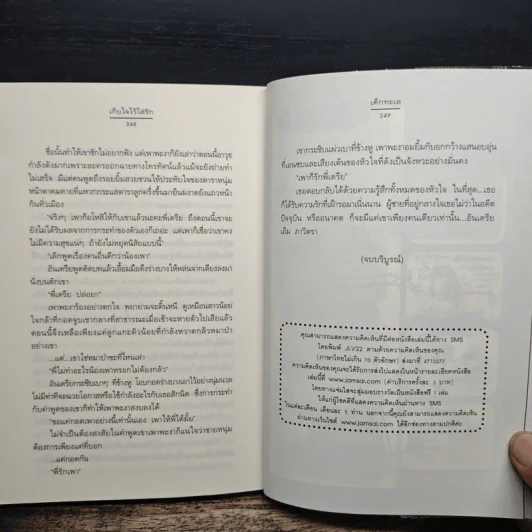 เก็บใจไว้ใส่รัก
248
ชื่อนั้นทำให้เขาชักไม่อยากฟัง แต่เพาพะงาก็ยังเล่าว่าตอนนี้อาวุธ
กำลังดังมากเพราะละครออกฉายทางโทรทัศน์แล้วแม้จะยังถ่ายทำ
ไม่เสร็จ มีแต่คนพูดถึงรอยยิ้มสวยชวนให้ประทับใจของดาราหนุ่ม
หน้าตาคมคายที่แหวกกระแสดาราลูกครึ่งขึ้นมายืนผงาดยังแถวหน้า
กันทั่วเมือง
"จริงๆ เพาก็อโหสิให้กับเขาแล้วนะคะพี่เตรีย ถึงตอนนี้เขาจะ
ยังไม่ได้รับผลจากการกระทำของตัวเองก็เถอะ แต่เพาก็เชื่อว่าเขาคง
ไม่มีความสุขแน่ๆ ถ้ายังไม่หยุดนิสัยแบบนี้"
"เลิกพูดเรื่องคนอื่นดีกว่าน้องเพา"
อันเตรียพูดตัดบทแล้วเอื้อมมือดึงร่างบางให้หล่นจากเตียงลงมา
นั่งบนตักเขา
"พี่เตรีย ปล่อยก่"
เพาพะงาร้องอย่างตกใจ พยายามจะดิ้นหนี ดูเหมือนสาวน้อย
ใจกล้าที่กอดจูบเขากลางที่สาธารณะเมื่อเช้าจะหายตัวไปเสียแล้ว
ตอนนี้จึงเหลือเพียงแค่ลูกแกะตัวน้อยที่กำลังหวาดกลัวหมาป่า
อย่างเขา
...แต่...เขาใช่หมาป่าซะที่ไหนเล่า
"พี่ไม่ทำอะไรน้องเพาหรอกไม่ต้องกลัว"
อันเตรียกระซิบเบาๆ ที่ข้างหู โอบกอดร่างบางเอาไว้อย่างนุ่มนวล
ไม่มีท่าทีจะฉวยโอกาสหรือใช้กำลังอะไรกับเธอสักนิด ซึ่งการกระทำ
กับคำพูดของเขาก็ทำให้เพาพะงาสงบลงได้
"ขอแค่กอดเพาอย่างนี้เท่านั้นเอง เพาให้พี่ได้มั้ย"
ไม่จำเป็นต้องสงสัยในคำพูดเขาเพาพะงาก็แน่ใจว่าชายหนุ่ม
ต้องการเพียงแค่ที่บอก
...แค่กอดกัน
"พี่รักเพา"
เด็กทะเล
249
เขากระซิบแผ่วเบาที่ข้างหู เพาพะงาอมยิ้มกับอกกว้างแสนอบอุ่น
ที่แอบซบและเสียงเต้นของหัวใจที่ดังเป็นจังหวะอย่างมั่นคง
"เพาก็รักพี่เตรีย"
เธอตอบกลับได้ด้วยความรู้สึกทั้งหมดของหัวใจ ในที่สุด...เธอ
ก็ได้รับความรักที่เฝ้ารอมาเนิ่นนาน ผู้ชายที่อยู่กลางใจเธอไม่ว่าในอดีต
ปัจจุบัน หรืออนาคต ก็จะมีแค่เขาเพียงคนเดียวเท่านั้น...อันเตรีย
เอ็ม ภาวิตรา
(จบบริบูรณ์)
คุณสามารถแสดงความคิดเห็นที่มีต่อหนังสือเล่มนี้ได้ทาง SMS
โดยพิมพ์ JLV22 ตามด้วยความคิดเห็นของคุณ
(ภาษาไทยไม่เกิน 70 ตัวอักษร) ส่งมาที่ 4712377
ความคิดเห็นของคุณจะได้รับการส่งไปแสดงในหน้ารายละเอียดหนังสือ
เล่มนี้ที่ www.jamsai.com (ค่าบริการครั้งละ 3 บาท)
โดยทางแจ่มใสจะสุ่มมอบรางวัลเป็นหนังสือฟรี 1 เล่ม
ให้แก่ผู้โชคดีที่แสดงความคิดเห็นผ่านทาง SMS
ในแต่ละเดือน เดือนละ 5 ท่าน นอกจากนี้คุณยังสามารถแสดงความคิดเห็น
ผ่านทางเว็บไซต์ www.jamsai.com ได้อีกช่องทางตามปกติค่ะ